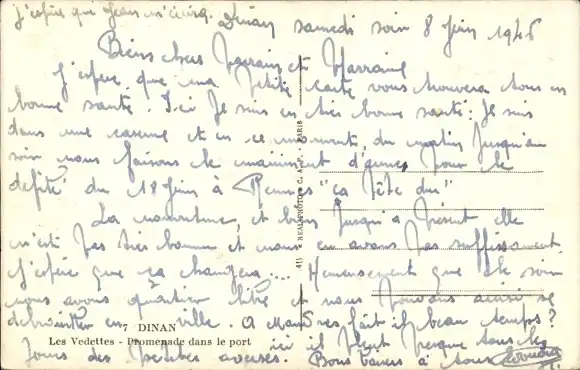 j'espère que Jean m'écrira. Dinan samedi soir 8 Juin 1946
Biens chers Parrain et Marraine
J'espère que ma petite carte vous trouvera tous en
bonne santé. Ici Je suis en très bonne santé: Je suis
dans une caserne et en ce moment, du matin Jusqu'au
soir nous faisons le maniment d'armes pour le
défilé du 18 Juin à Rennes "ça pête dur"
La nourriture, et bien Jusqu'à présent elle
n'est pas très bonne et nous en avons pas suffisament.
J'espère que ça changera.... Heureusement que le soir
nous avons quartier libre et nous pouvons ainsi se
débrouiller en ville. A fait il beau temps?
ici il pleut presque tous les
Jours des petites averses. Bons baisers à tous
7 DINAN
Les Vedettes - Promenade dans le port
411 REAL-PHOTO C. A. P. PARIS